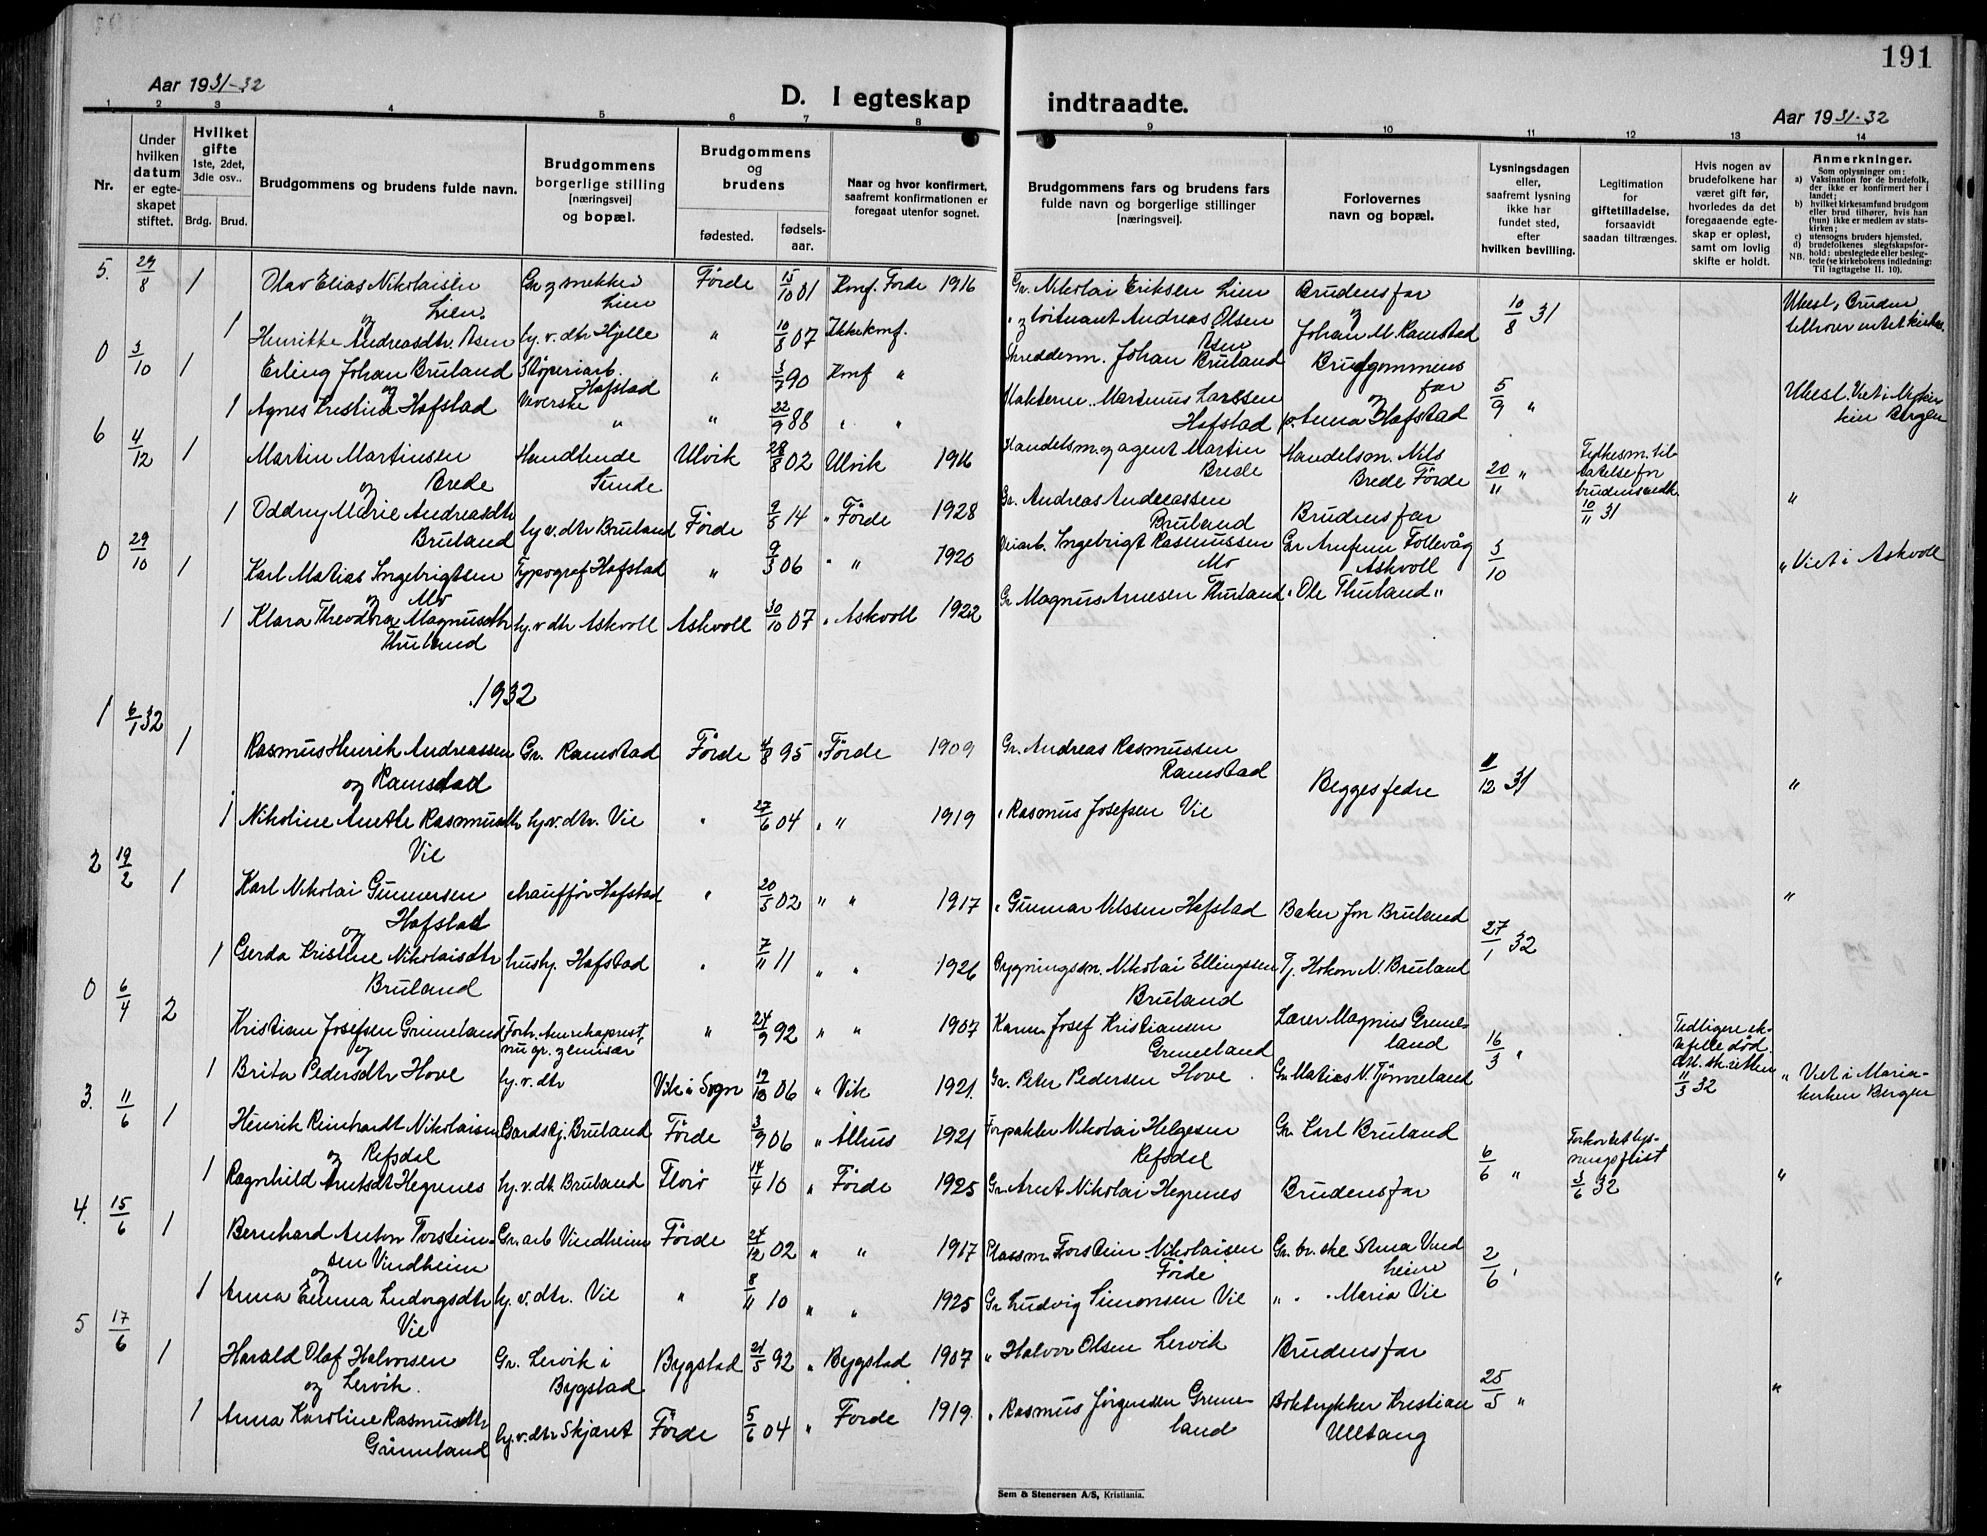 191
Aar 1931-32
D. I egteskap indtraadte.
Aar 1931-32
1 2 3 4 5 6 7 8 9 10 11 12 13 14
Nr.
Under hvilken datum er egteskapet stiftet.
Hvilket gifte 1ste, 2det, 3die osv..
Brdg. Brud.
Brudgommens og brudens fulde navn.
Brudgommens borgerlige stilling [næringsvei] og bopæl.
Brudgommens og brudens
fødested. fødselsaar.
Naar og hvor konfirmert, saafremt konfirmationen er foregaat utenfor sognet.
Brudgommens fars og brudens fars fulde navn og borgerlige stillinger [næringsvei].
Forlovernes navn og bopæl.
Lysningsdagen eller, saafremt lysning ikke har fundet sted, efter hvilken bevilling.
Legitimation for giftetilladelse, forsaavidt saadan tiltrænges.
Hvis nogen av brudefolkene har været gift før, hvorledes da det foregaaende egteskap er opløst, samt om lovlig skifte er holdt.
Anmerkninger.
Som oplysninger om:
a) Vaksination for de brudefolk, der ikke er konfirmert her i landet;
b) hvilket kirkesamfund brudgom eller brud tilhører, hvis han (hun) ikke er medlem av statskirken;
c) utensogns bruders hjemsted,
d) brudefolkenes slegtskapsforhold: ubeslegtede eller beslegtede (se kirkebokens indledning:
NB. Til iagttagelse II. 10).
5. 29/8 1 Olav Elias Nikolaisen Gr. og snekker Förde 15/10 01 Konf. Förde 1916 Gr. Nikolai Eriksen Lien Brudens far 10/8 31 Ubesl. Bruden
og Lien. Lien og
1 Henritte Andreasdtr. Åsen hj. v. dtr Hjelle " 10/8 07 Ikke konf. " og Andreas Olsen Åsen Johan M. Ramstad
0 3/10 1 Erling Johan Bruland Støperiarb. Hafstad " 3/7 90 Konf " Skredderm. Johan Bruland Brudgommens far 5/9 " Ubesl. Viet i
og
1 Agnes Kristina Hafstad Veverske " " 22/9 88 " " Martinus Larssen Hafstad og Anna Hafstad Bergen
6 4/12 1 Martin Martinsen Handlende Ulvik 28/8 02 Ulvik 1916 Handelsm. og agent Martin Handelsm. Nils 20/11 "
og Brede Sunde Brede Brede Förde
1 Oddny Marie Andreasdtr hj. v. dtr Bruland Förde 9/5 14 " Förde 1928 Gr. Andreas Andreassen Brudens far 10/11 31 "
Bruland Bruland
0 29/10 1 Karl Matias Ingebrigtsen Typograf Hafstad " 9/3 06 " " 1920 Veiarb. Ingebrigt Rasmussen Gr Follevåg 3/10 " Viet i Askvoll
og Mo Mo Askvoll
1 Klara Theodora Magnusdtr hj. v dtr Askvoll Askvoll 30/10 07 " Askvoll 1922 Gr Magnus Arnesen Thuland " Ole Thuland "
Thuland
1932
1 6/1 32 1 Rasmus Henrik Andreassen Gr. Ramstad Förde 4/8 95 " Förde 1909 Gr. Andreas Rasmussen 12 31 "
og Ramstad Ramstad Begges fedre
1 Nikoline Anette Rasmusdtr hj. v. dtr. Vie " 27/6 04 " " 1919 " Rasmus Josefsen Vie
Vie
2 19/2 1 Karl Nikolai Gunnarsen chauffør Hafstad " 20/5 02 " " 1917 " Gunnar Nilssen Hafstad Baker Jon Bruland 27/1 32 "
og Hafstad
1 Gerda Kristine Nikolaisdtr hushj. Hafstad " 7/11 11 " " 1926 Bygningssn. Nikolai Ellingssen Tj. Hokon N. Bruland
Bruland Bruland
0 6/4 2 Kristian Josefsen Grimeland Forh. " 24/9 92 " " 1907 Josef Kristiansen Lærer Magnus Grimeland 16/3 " Tidligere ektefelle død.
og nu gr. Grimeland
1 Brita Pedersdtr Hove hj. v. dtr Vik i Sogn 19/10 06 " Vik 1921. Gr. Peter Pedersen Hove. Gr. Matias N. Tjönneland 11/3 32 " Viet i Mariakirken Bergen
3. 11/6 1 Henrik Reinhardt Nikolaisen Gardskj. Bruland Förde 3/9 06 " Ålhus 1921 Forpakter Nikolai Helgesen Gr. Karl Bruland 6/6 " Forkortet lysningsfrist
og Refsdal Refsdal
1 Ragnhild Arntsdt Hegrenes hj. v. dt. Bruland Florö 14/4 10 " Förde 1925 Gr. Arnt Nikolai Hegrenes Brudens far 3/6 32 "
4. 15/6 1 Bernhard Anton Torsteinsen Vindheim Gr. arb Vindheim Förde 24/12 02 " " 1917 Plassm. Torstein Nikolaisen Gr. br. ske Stina Vindheim 2/6 "
og Förde
1 Anna Emma Ludvigsdtr hj. v. dtr. Vie " 8/11 10 " " 1925 Gr Ludvig Simonsen Vie " " Maria Vie "
Vie
5 17/6 1 Harald Olaf Halvorsen Gr. Lervik i Bygstad 21/5 92 " Bygstad 1907 " Halvor Olsen Lervik Brudens far 25/5 "
og Lervik. Bygstad
1 Anna Karoline Rasmusdtr hj. v. dtr Skjæret Förde 5/6 04 " Förde 1919. " Rasmus Jørgensen Grimeland Boktrykker Kristian "
Grimeland Ulltang
Sem & Stenersen A/S, Kristiania.